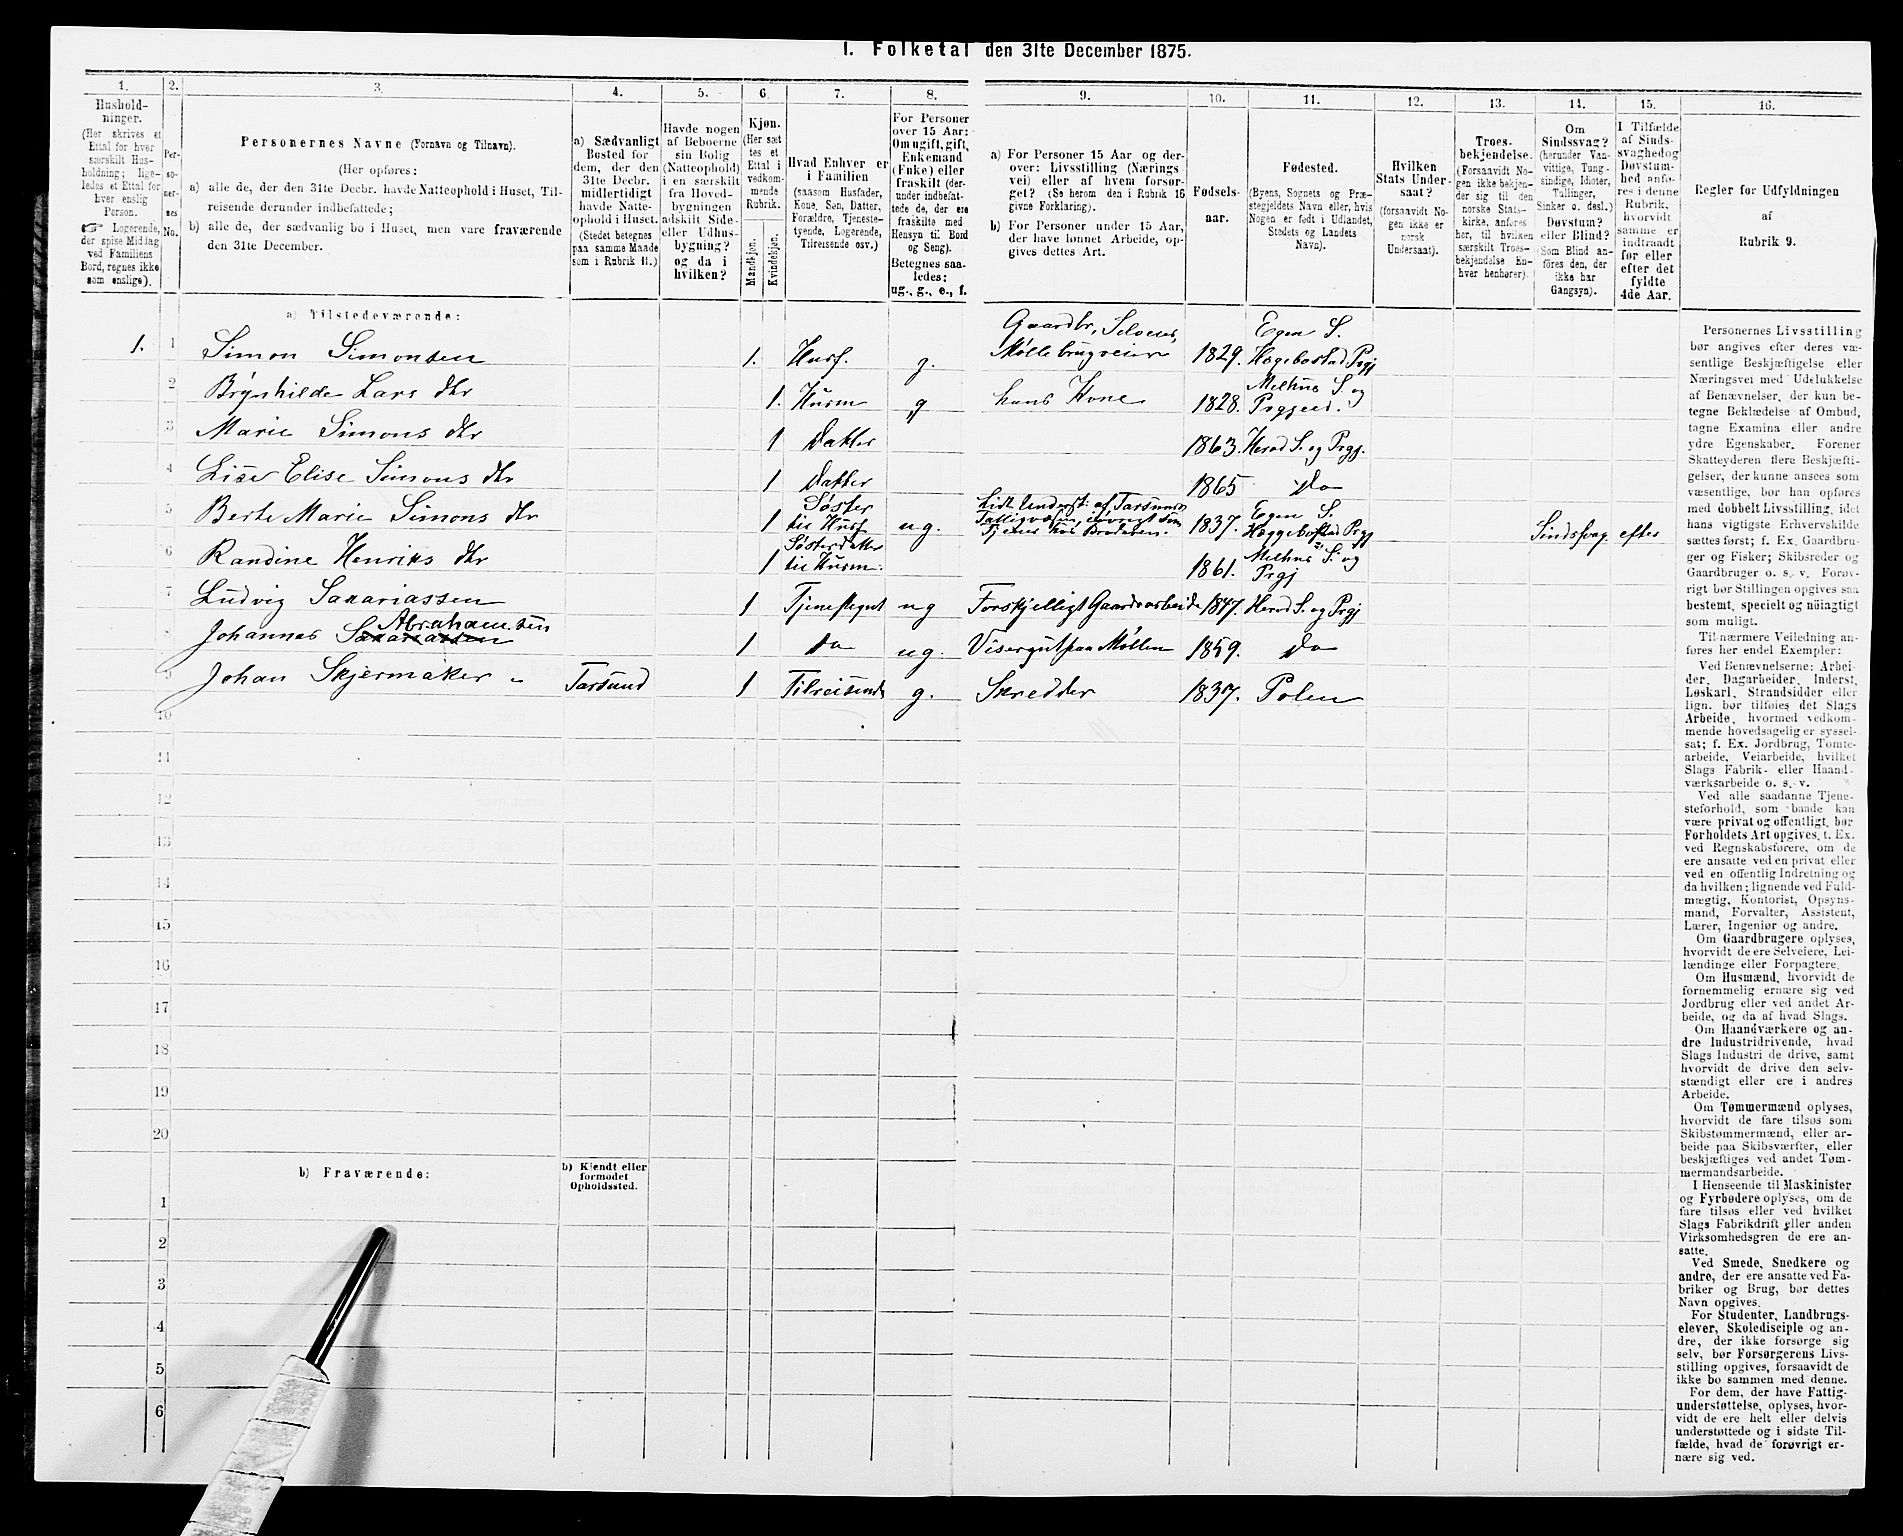 I. Folketal den 31te December 1875.
1. 2. 3. 4. 5. 6. 7. 8. 9. 10. 11. 12. 13. 14. 15. 16.
Hushold-
ninger.
(Her skrives et
Ettal for hver
særskilt Hus-
holdning; lige-
ledes et Ettal for
hver enslig
Person.
☞ Logerende,
der spise Middag
ved Familiens
Bord, regnes ikke
som enslige).
Per-
so-
ner-
nes
No.
Personernes Navne (Fornavn og Tilnavn).
(Her opføres:
a) alle de, der den 31te Decbr. havde Natteophold i Huset, Til-
reisende derunder indbefattede;
b) alle de, der sædvanlig bo i Huset, men vare fraværende
den 31te December.
a) Sædvanligt
Bosted for
dem, der den
31te Decbr.
midlertidigt
havde Natte-
ophold i Huset.
(Stedet betegnes
paa samme Maade
som i Rubrik 11.)
Havde nogen
af Beboerne
sin Bolig
(Natteophold)
i en særskilt
fra Hoved-
bygningen
adskilt Side-
eller Udhus-
bygning?
og da i
hvilken?
Kjøn.
(Her sæt-
tes et
Ettal i
vedkom-
mende
Rubrik.
Mandkjøn.
Kvindekjøn.
Hvad Enhver er
i Familien
(saasom Husfader,
Kone, Søn, Datter,
Forældre, Tjeneste-
tyende, Logerende,
Tilreisende osv.)
For Personer
over 15 Aar:
Om ugift, gift,
Enkemand
(Enke) eller
fraskilt (der-
under indbefat-
tede de, der ere
fraskilte med
Hensyn til Bord
og Seng).
Betegnes saa-
ledes:
ug., g., e., f.
a) For Personer 15 Aar og der-
over: Livsstilling (Nærings-
vei) eller af hvem forsør-
get? (Se herom den i Rubrik 16
givne Forklaring).
b) For Personer under 15 Aar,
der have lønnet Arbeide, op-
gives dettes Art.
Fødsels-
aar.
Fødested.
(Byens, Sognets og Præ-
stegjeldets Navn eller, hvis
Nogen er født i Udlandet,
Stedets og Landets
Navn).
Hvilken
Stats Under-
saat?
(forsaavidt No-
gen ikke er
norsk
Undersaat).
Troes-
bekjendelse.
(Forsaavidt No-
gen ikke bekjen-
der sig til den
norske Stats-
kirke, anføres
her, til hvilken
særskilt Troes-
bekjendelse En-
hver henhører).
Om
Sindssvag?
(herunder Van-
vittige, Tung-
sindige, Idioter,
Tullinger,
Sinker o. desl.)
Døvstum?
eller Blind?
(Som Blind an-
føres den, der
ikke har
Gangsyn).
I Tilfælde
af Sinds-
svaghed og
Døvstum-
hed anfø-
res i denne
Rubrik,
hvorvidt
samme er
indtraadt
før eller
efter det
fyldte
4de Aar.
Regler for Udfyldningen
af
Rubrik 9.
a) Tilstedeværende:
1. 1 Simon Simonsen 1. Husf. g. Gaardbr, Selveier, Møllebrugveier 1829. Egen S. Hægebostad Prgj
2 Brynhilde Lars dtr 1. Husm g hans Kone 1828. Melhus S. og Prgjeld.
3 Marie Simons dtr 1 Datter 1863. Herad S. og Prgj.
4 Lise Elise Simons dtr 1 Datter 1865 Do
5 Berte Marie Simons dtr 1 Søster til Husf ug. Lidt Underst: af Farsunds Fattigvæsen, iøvrigt som Tjener hos Broderen. 1837. Egen S. Hæggebostad Prgj Sindssvag efter
6 Randine Henriks dtr 1 Søsterdatter til Husm. 1861. Melhus S. og Prgj
7 Ludvig Sakariassen 1 Tjenestegut ug Forskjelligt Gaardsarbeide 1847. Herad S. og Prgj
Abrahamsen
8 Johannes Sakariassen 1 do ug. Visergut paa Møllen 1859. Do
9 Johan Skjermaker Farsund 1 Tilreisende g. Skredder 1837. Polen
10
11
12
13
14
15
16
17
18
19
20
b) Fraværende:
b) Kjendt eller
formodet
Opholdssted.
1
2
3
4
5
6
Personernes Livsstilling
bør angives efter deres væ-
sentlige Beskjæftigelse eller
Næringsvei med Udelukkelse
af Benævnelser, der kun be-
tegne Beklædelse af Ombud,
tagne Examina eller andre
ydre Egenskaber. Forener
Skatteyderen flere Beskjæfti-
gelser, der kunne ansees som
væsentlige, bør han opføres
med dobbelt Livsstilling, idet
hans vigtigste Erhvervskilde
sættes først; f. Ex. Gaardbru-
ger og Fisker; Skibsreder og
Gaardbruger o. s. v. Forøv-
rigt bør Stillingen opgives saa
bestemt, specielt og nøiagtigt
som muligt.
Til nærmere Veiledning an-
føres her endel Exempler:
Ved Benævnelserne: Arbei-
der, Dagarbeider, Inderst,
Løskarl, Strandsidder eller
lign. bør tilføies det Slags
Arbeide, hvormed vedkom-
mende hovedsagelig er syssel-
sat; f. Ex. Jordbrug, Tomte-
arbeide, Veiarbeide, hvilket
Slags Fabrik- eller Haand-
værksarbeide o. s. v.
Ved alle saadanne Tjene-
steforhold, som baade kan
være privat og offentligt, bør
Forholdets Art opgives, t. Ex.
ved Regnskabsførere, om de
ere ansatte ved en privat eller
ved en offentlig Indretning og
da hvilken; lignende ved Fuld-
mægtig, Kontorist, Opsyns-
mand, Forvalter, Assistent,
Lærer, Ingeniør og andre.
Om Gaardbrugere oplyses,
hvorvidt de ere Selveiere, Lei-
lændinge eller Forpagtere.
Om Husmænd, hvorvidt de
fornemmelig ernære sig ved
Jordbrug eller ved andet Ar-
beide, og da af hvad Slags.
Om Haandværkere og an-
dre Industridrivende, hvad
Slags Industri de drive, samt
hvorvidt de drive den selv-
stændigt eller ere i andres
Arbeide.
Om Tømmermænd oplyses,
hvorvidt de fare tilsøs som
Skibstømmermænd, eller ar-
beide paa Skibsværfter, eller
beskjæftiges ved andet Tøm-
mermandsarbeide.
I Henseende til Maskinister
og Fyrbødere oplyses, om de
fare tilsøs eller ved hvilket
Slags Fabrikdrift eller anden
Virksomhedsgren de ere an-
satte.
Ved Smede, Snedkere og
andre, der ere ansatte ved Fa-
briker og Brug, bør dettes
Navn opgives.
For Studenter, Landbrugs-
elever, Skoledisciple og an-
dre, der ikke forsørge sig
selv, bør Forsørgerens Livs-
stilling opgives, forsaavidt de
ikke bo sammen med denne.
For dem, der have Fattig-
understøttelse, oplyses, hvor-
vidt de ere helt eller delvis
understøttede og i sidste Til-
fælde, hvad de forøvrigt er-
nære sig ved.